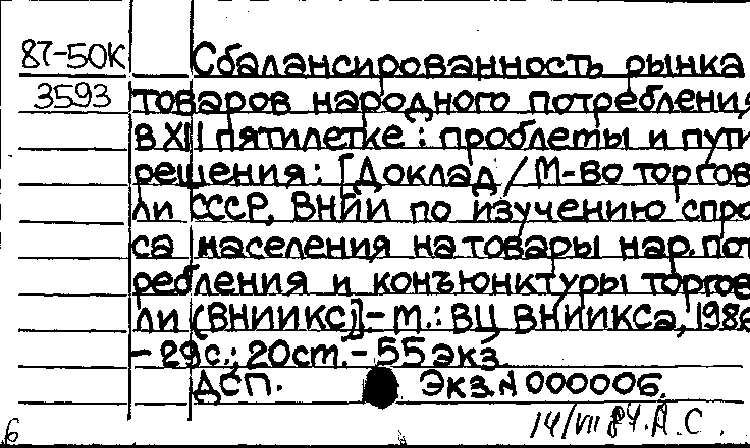 87-50К Сбалансированность рынка
3593 товаров народного потреблени
в XII пятилетке: проблемы и пути
решения: [Доклад / М-во торгов
ли СССР, ВНИИ по изучению спро
са населения на товары нар. пот
ребления и конъюнктуры торгов
ли (ВНИИКС)]. - М.: ВЦ ВНИИКСа, 198
- 29 с.; 20 ст. - 55 экз.
ДСП. Экз. № 000006.
14/VII 87. А.С.
6